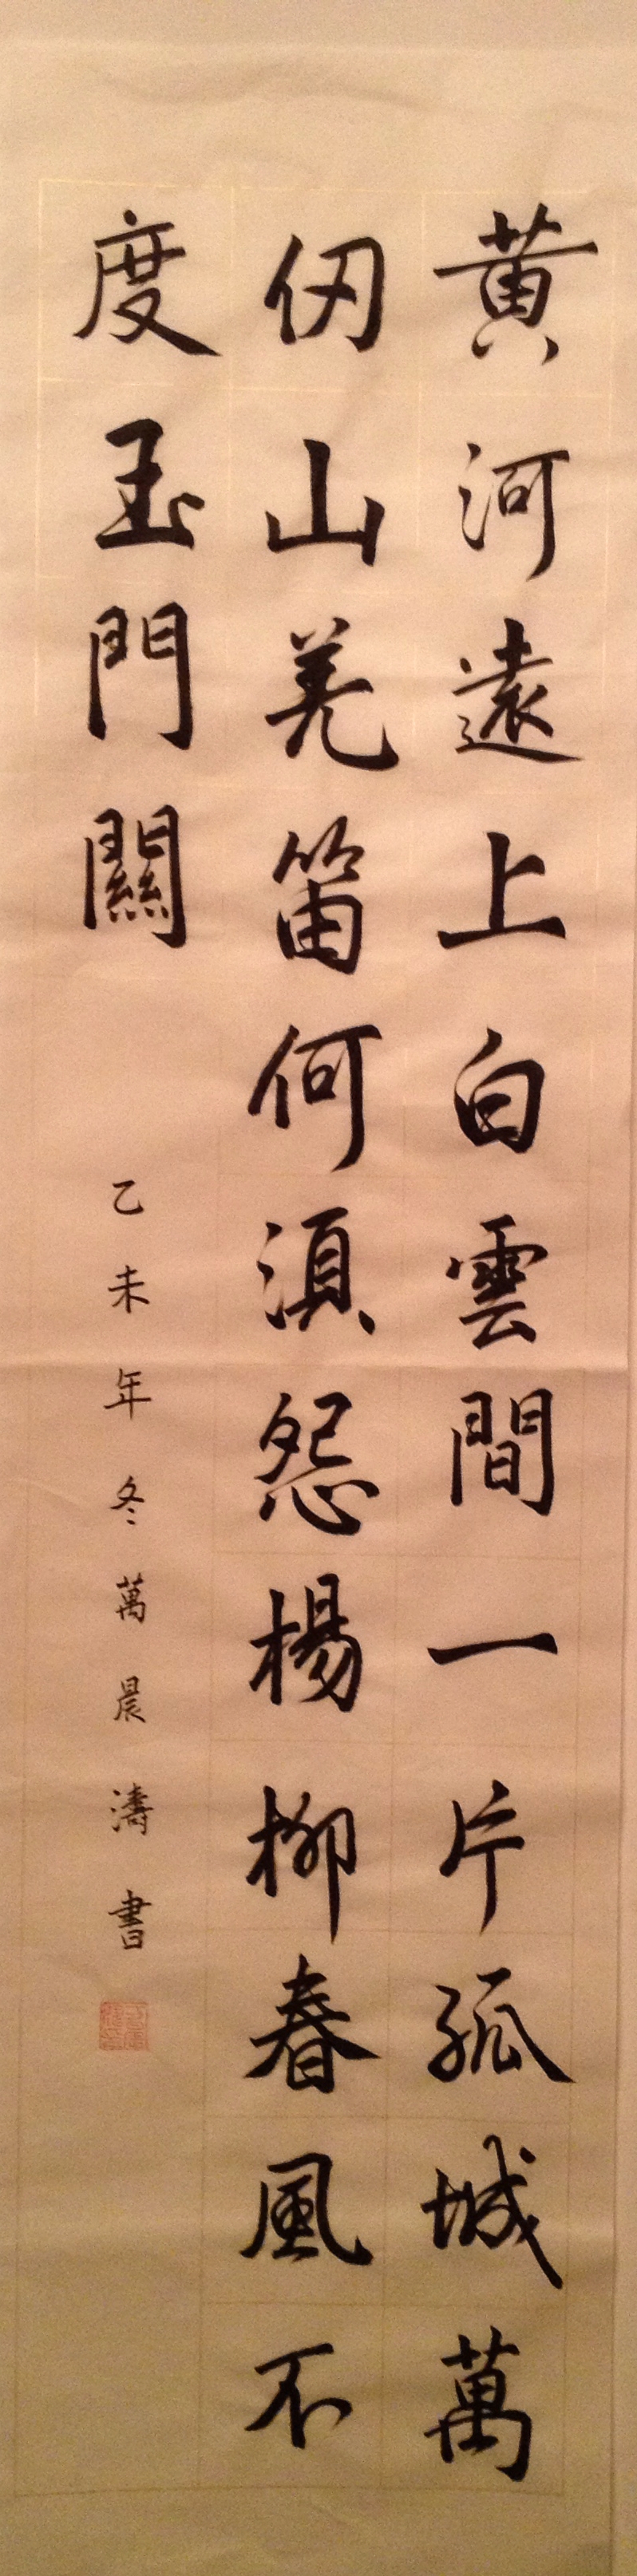 黄河遠上白雲間一片孤城萬
仞山羌笛何須怨楊柳春風不
度玉門關
乙未年冬萬晨濤書